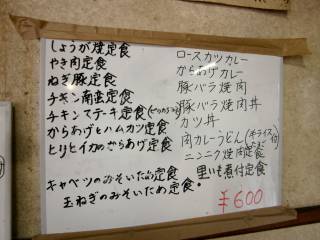 しょうが焼定食
やき肉定食
ねぎ豚定食
チキン南蛮定食
チキンステーキ定食
からあげとハムカツ定食
ヒリヒリイカのからあげ定食
キャベツのみそいため定食
玉ねぎのみそいため定食。
ロースカツカレー
からあげカレー
豚バラ焼肉
豚バラ焼肉丼
カツ丼
肉カレーうどん(半ライス付)
ニンニク焼肉定食
里いも煮付定食
¥600